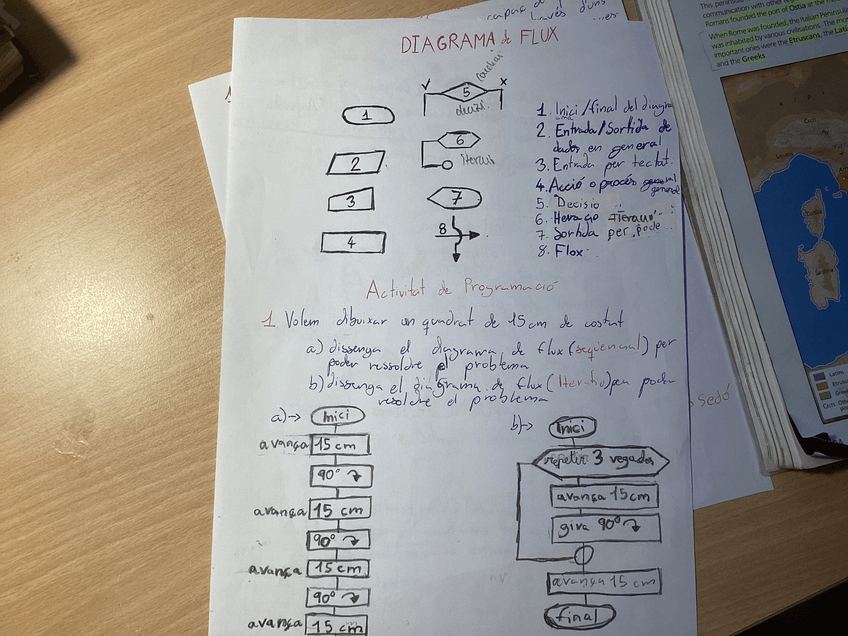 DIAGRAMA de FLUX
1
2
3
4
✓
x
5
6
7
8
1. Inici/final del diagrama
2. Entrada/Sortida de
dades en general
3. Entrada per teclat.
4. Acció o procés general
5. Decisio
6.
7. Sortida per
8. Flox
Activitat de Programació
1 Volem dibuixar un quadrat de 15 cm de costat
a) dissenya el diagrama de flux (seqüencial) per
poder ressoldre el problema
b) dissenya el diagrama de flux (Iteratiu) per poder
resoldre el problema
a)→
Inici
avança 15 cm
90º
avança 15 cm
90º
avança 15 cm
90º
avança 15 cm
b)→
Inici
repetir 3 vegades
avança 15cm
gira 90º
avança 15 cm
final
This peninsula
communication with other
Romans founded the port of Ostia at the
When Rome was founded, the Italian Peninsula
was inhabited by various civilisations. The
important ones were the Etruscans, the
and the Greeks.